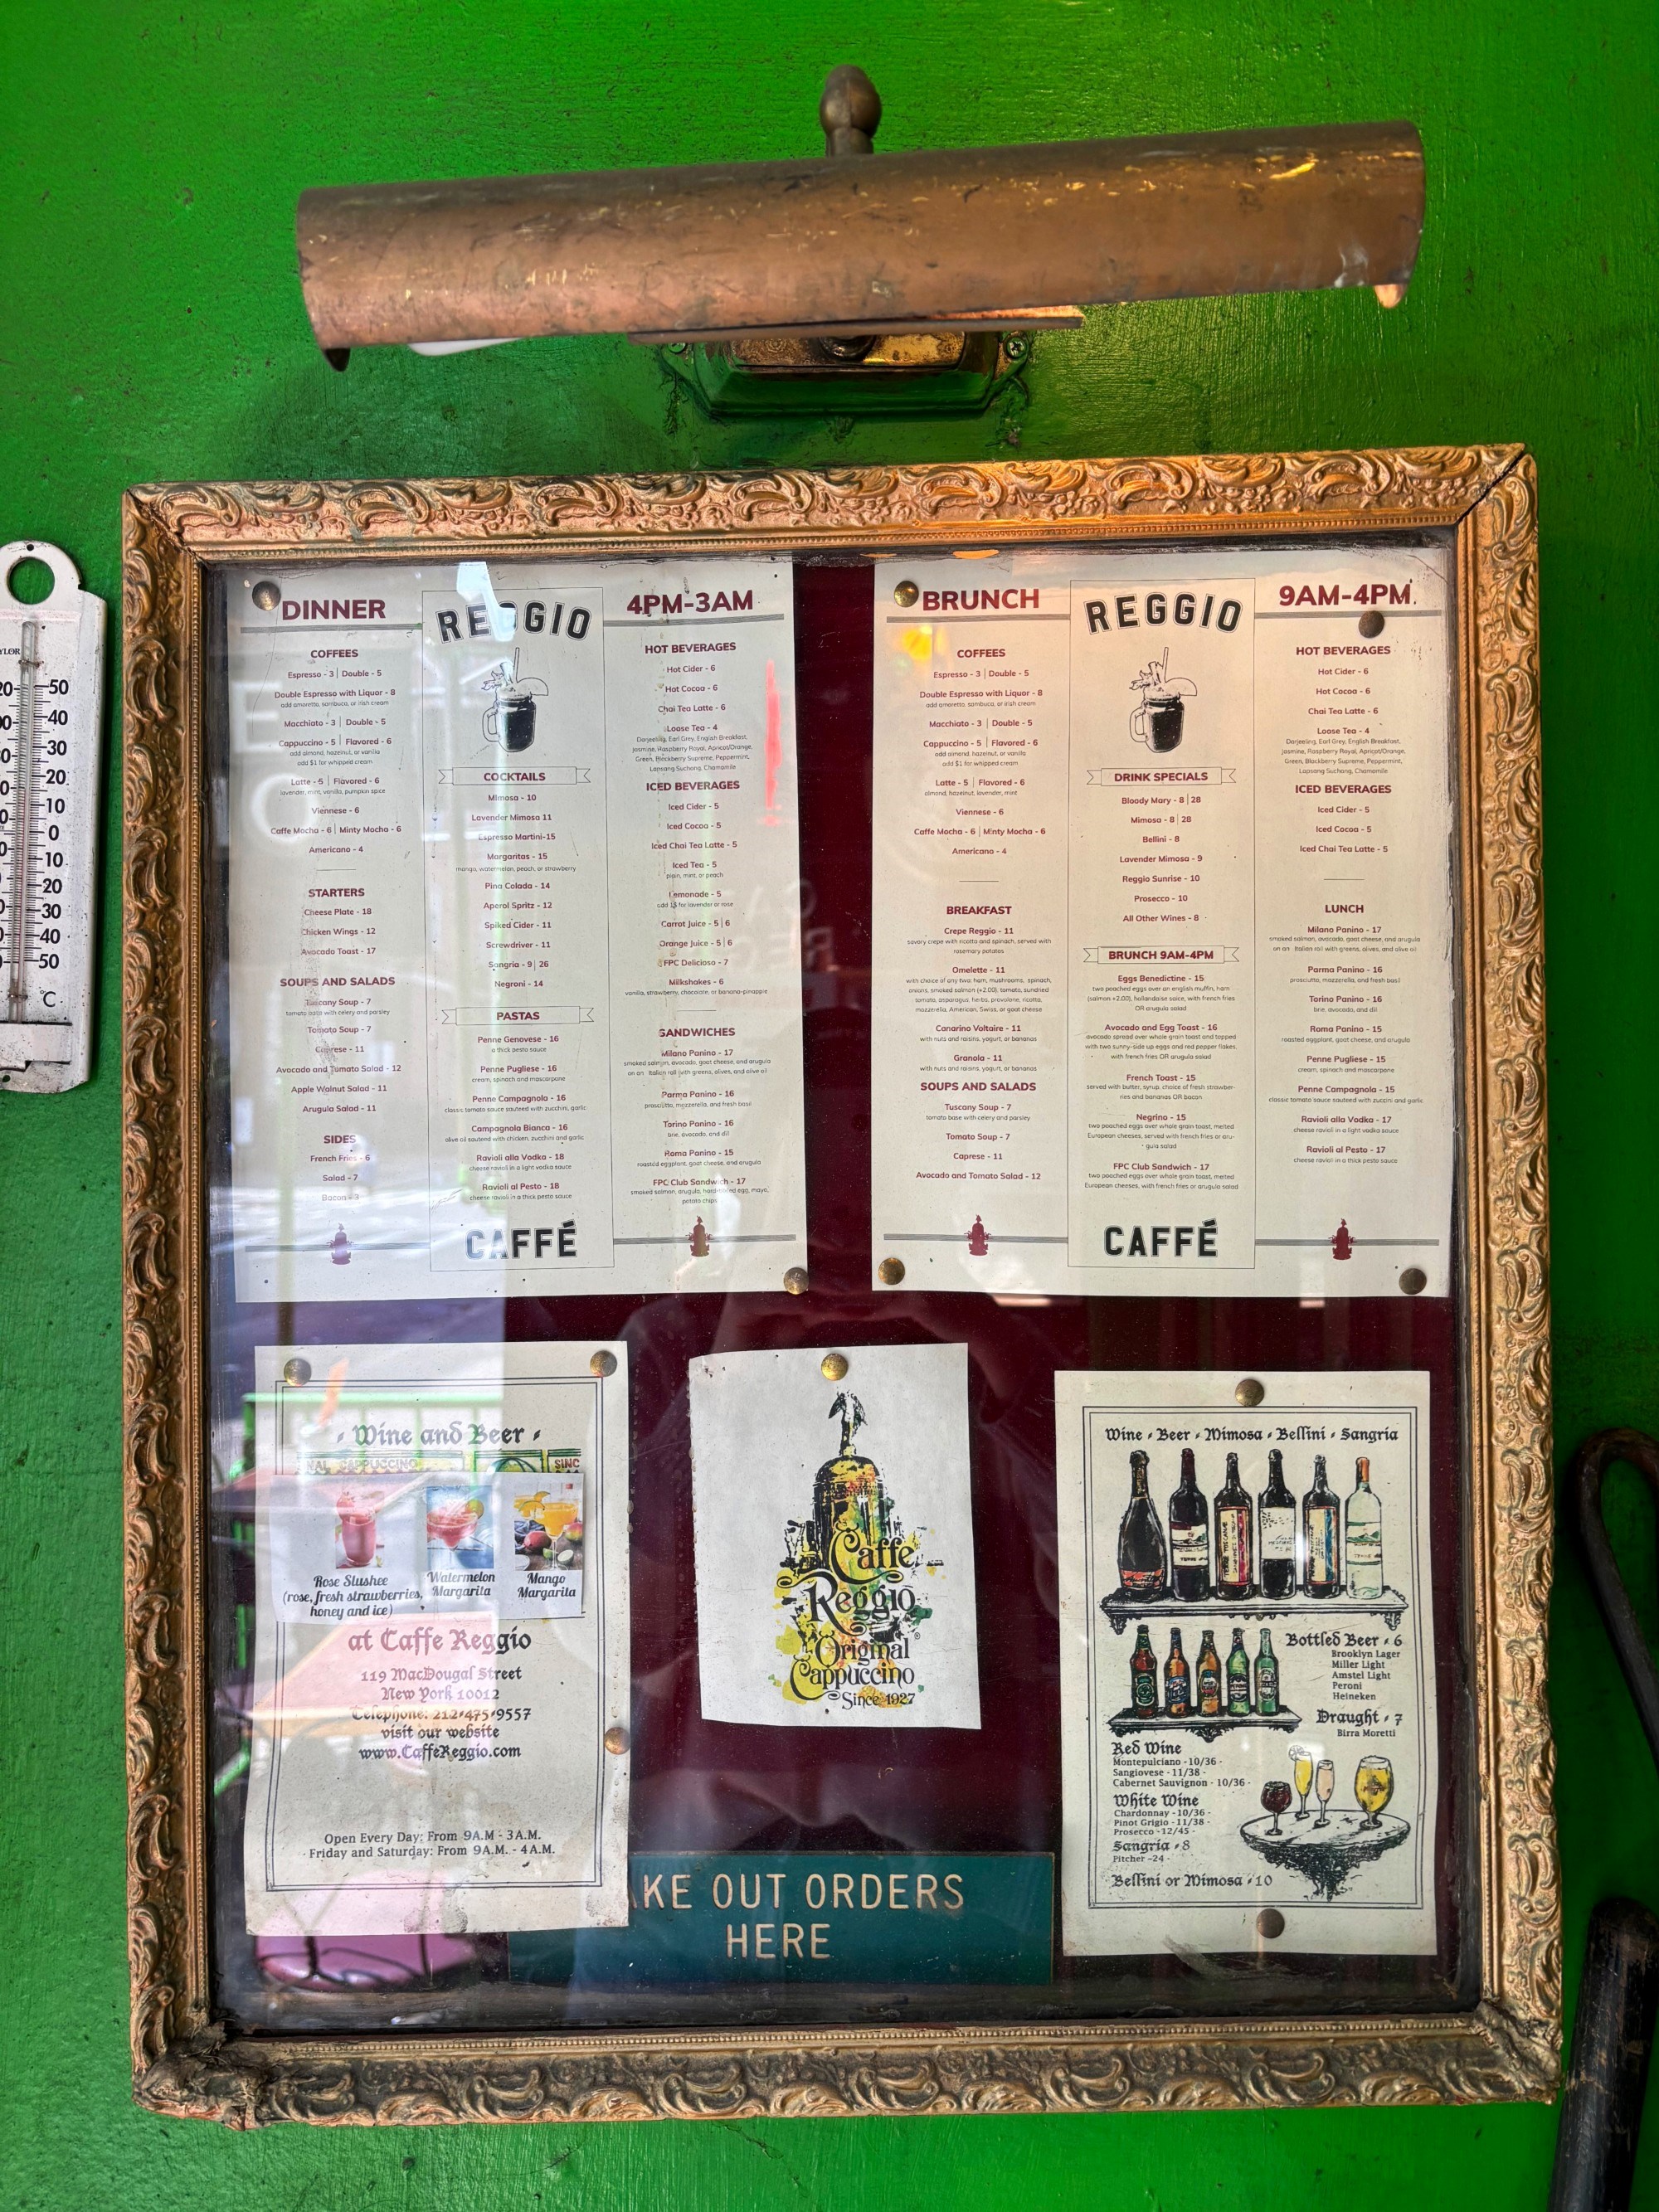 DINNER
REGGIO
4PM-3AM
COFFEES
Espresso - 3 | Double - 5
Double Espresso with Liquor - 8
add amaretto, sambuca, or irish cream
Macchiato - 3 | Double - 5
Cappuccino - 5 | Flavored - 6
add almond, hazelnut, or vanilla
add $1 for whipped cream
Latte - 5 | Flavored - 6
lavender, mint, vanilla, pumpkin spice
Viennese - 6
Caffe Mocha - 6 | Minty Mocha - 6
Americano - 4
STARTERS
Cheese Plate - 18
Chicken Wings - 12
Avocado Toast - 17
SOUPS AND SALADS
Tuscany Soup - 7
tomato base with celery and parsley
Tomato Soup - 7
Caprese - 11
Avocado and Tomato Salad - 12
Apple Walnut Salad - 11
Arugula Salad - 11
SIDES
French Fries - 6
Salad - 7
Bacon - 3
COCKTAILS
Mimosa - 10
Lavender Mimosa 11
Espresso Martini-15
Margaritas - 15
mango, watermelon, peach, or strawberry
Pina Colada - 14
Aperol Spritz - 12
Spiked Cider - 11
Screwdriver - 11
Sangria - 9 | 26
Negroni - 14
PASTAS
Penne Genovese - 16
a thick pesto sauce
Penne Pugliese - 16
cream, spinach and mascarpone
Penne Campagnola - 16
classic tomato sauce sauteed with zucchini, garlic
Campagnola Bianca - 16
olive oil sauteed with chicken, zucchini and garlic
Ravioli alla Vodka - 18
cheese ravioli in a light vodka sauce
Ravioli al Pesto - 18
cheese ravioli in a thick pesto sauce
CAFFÉ
HOT BEVERAGES
Hot Cider - 6
Hot Cocoa - 6
Chai Tea Latte - 6
Loose Tea - 4
Darjeeling, Earl Grey, English Breakfast,
Jasmine, Raspberry Royal, Apricot/Orange,
Green, Blackberry Supreme, Peppermint,
Lapsang Suchong, Chamomile
ICED BEVERAGES
Iced Cider - 5
Iced Cocoa - 5
Iced Chai Tea Latte - 5
Iced Tea - 5
plain, mint, or peach
Lemonade - 5
add 1$ for lavender or rose
Carrot Juice - 5 | 6
Orange Juice - 5 | 6
FPC Delicioso - 7
Milkshakes - 6
vanilla, strawberry, chocolate, or banana-pineapple
SANDWICHES
Milano Panino - 17
smoked salmon, avocado, goat cheese, and arugula
on an Italian roll (with greens, olives, and olive oil
Parma Panino - 16
prosciutto, mozzerella, and fresh basil
Torino Panino - 16
brie, avocado, and dil
Roma Panino - 15
roasted eggplant, goat cheese, and arugula
FPC Club Sandwich - 17
smoked salmon, arugula, hard-boiled egg, mayo,
potato chips
BRUNCH
REGGIO
9AM-4PM
COFFEES
Espresso - 3 | Double - 5
Double Espresso with Liquor - 8
add amaretto, sambuca, or irish cream
Macchiato - 3 | Double - 5
Cappuccino - 5 | Flavored - 6
add almond, hazelnut, or vanilla
add $1 for whipped cream
Latte - 5 | Flavored - 6
almond, hazelnut, lavender, mint
Viennese - 6
Caffe Mocha - 6 | Minty Mocha - 6
Americano - 4
BREAKFAST
Crepe Reggio - 11
savory crepe with ricotta and spinach, served with
rosemary potatoes
Omelette - 11
with choice of any two: ham, mushrooms, spinach,
onions, smoked salmon (+2.00), tomato, sundried
tomato, asparagus, herbs, provolone, ricotta,
mozzerella, American, Swiss, or goat cheese
Canarino Voltaire - 11
with nuts and raisins, yogurt, or bananas
Granola - 11
with nuts and raisins, yogurt, or bananas
SOUPS AND SALADS
Tuscany Soup - 7
tomato base with celery and parsley
Tomato Soup - 7
Caprese - 11
Avocado and Tomato Salad - 12
DRINK SPECIALS
Bloody Mary - 8 | 28
Mimosa - 8 | 28
Bellini - 8
Lavender Mimosa - 9
Reggio Sunrise - 10
Prosecco - 10
All Other Wines - 8
BRUNCH 9AM-4PM
Eggs Benedictine - 15
two poached eggs over an english muffin, ham
(salmon +2.00), hollandaise salce, with french fries
OR arugula salad
Avocado and Egg Toast - 16
avocado spread over whole grain toast and topped
with two sunny-side up eggs and red pepper flakes,
with french fries OR arugula salad
French Toast - 15
served with butter, syrup, choice of fresh strawber-
ries and bananas OR bacon
Negrino - 15
two poached eggs over whole grain toast, melted
European cheeses, served with french fries or aru-
gula salad
FPC Club Sandwich - 17
two poached eggs over whole grain toast, melted
European cheeses, with french fries or arugula salad
CAFFÉ
HOT BEVERAGES
Hot Cider - 6
Hot Cocoa - 6
Chai Tea Latte - 6
Loose Tea - 4
Darjeeling, Earl Grey, English Breakfast,
Jasmine, Raspberry Royal, Apricot/Orange,
Green, Blackberry Supreme, Peppermint,
Lapsang Suchong, Chamomile
ICED BEVERAGES
Iced Cider - 5
Iced Cocoa - 5
Iced Chai Tea Latte - 5
LUNCH
Milano Panino - 17
smoked salmon, avocado, goat cheese, and arugula
on an Italian roll with greens, olives, and olive oil
Parma Panino - 16
prosciutto, mozzerella, and fresh basil
Torino Panino - 16
brie, avocado, and dil
Roma Panino - 15
roasted eggplant, goat cheese, and arugula
Penne Pugliese - 15
cream, spinach and mascarpone
Penne Campagnola - 15
classic tomato sauce sauteed with zuccini and garlic
Ravioli alla Vodka - 17
cheese ravioli in a light vodka sauce
Ravioli al Pesto - 17
cheese ravioli in a thick pesto sauce
Wine and Beer
Rose Slushee
(rose, fresh strawberries,
honey and ice)
Watermelon
Margarita
Mango
Margarita
at Caffe Reggio
119 MacDougal Street
New York 10012
Telephone: 212-475-9557
visit our website
www.CaffeReggio.com
Open Every Day: From 9A.M - 3A.M.
Friday and Saturday: From 9A.M. - 4A.M.
Caffe
Reggio
Original
Cappuccino
Since 1927
AKE OUT ORDERS
HERE
Wine - Beer - Mimosa - Bellini - Sangria
Bottled Beer - 6
Brooklyn Lager
Miller Light
Amstel Light
Peroni
Heineken
Draught - 7
Birra Moretti
Red Wine
Montepulciano - 10/36 -
Sangiovese - 11/38 -
Cabernet Sauvignon - 10/36 -
White Wine
Chardonnay - 10/36 -
Pinot Grigio - 11/38 -
Prosecco - 12/45 -
Sangria - 8
Pitcher -24 -
Bellini or Mimosa - 10
50
40
30
20
10
0
10
20
30
40
50
°C